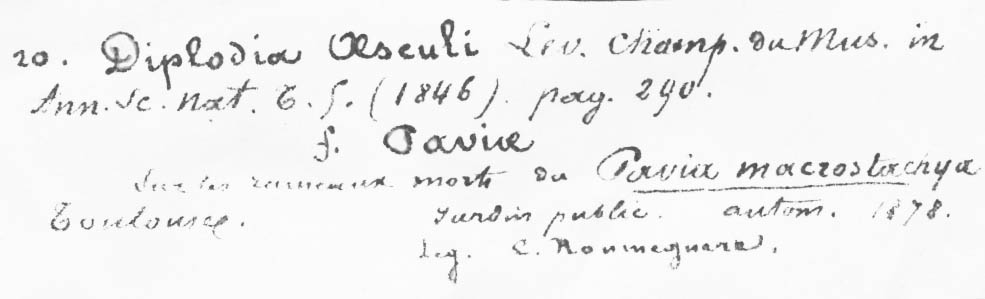 20. Diplodia Æsculi Lev. Champ. du Mus. in
Ann. Sc. nat. T. 5. (1846). pag. 290.
f. Paviæ
Sur les rameaux morts du Pavia macrostachya
Toulouse. Jardin public. autom. 1878.
Leg. C. Roumeguere.